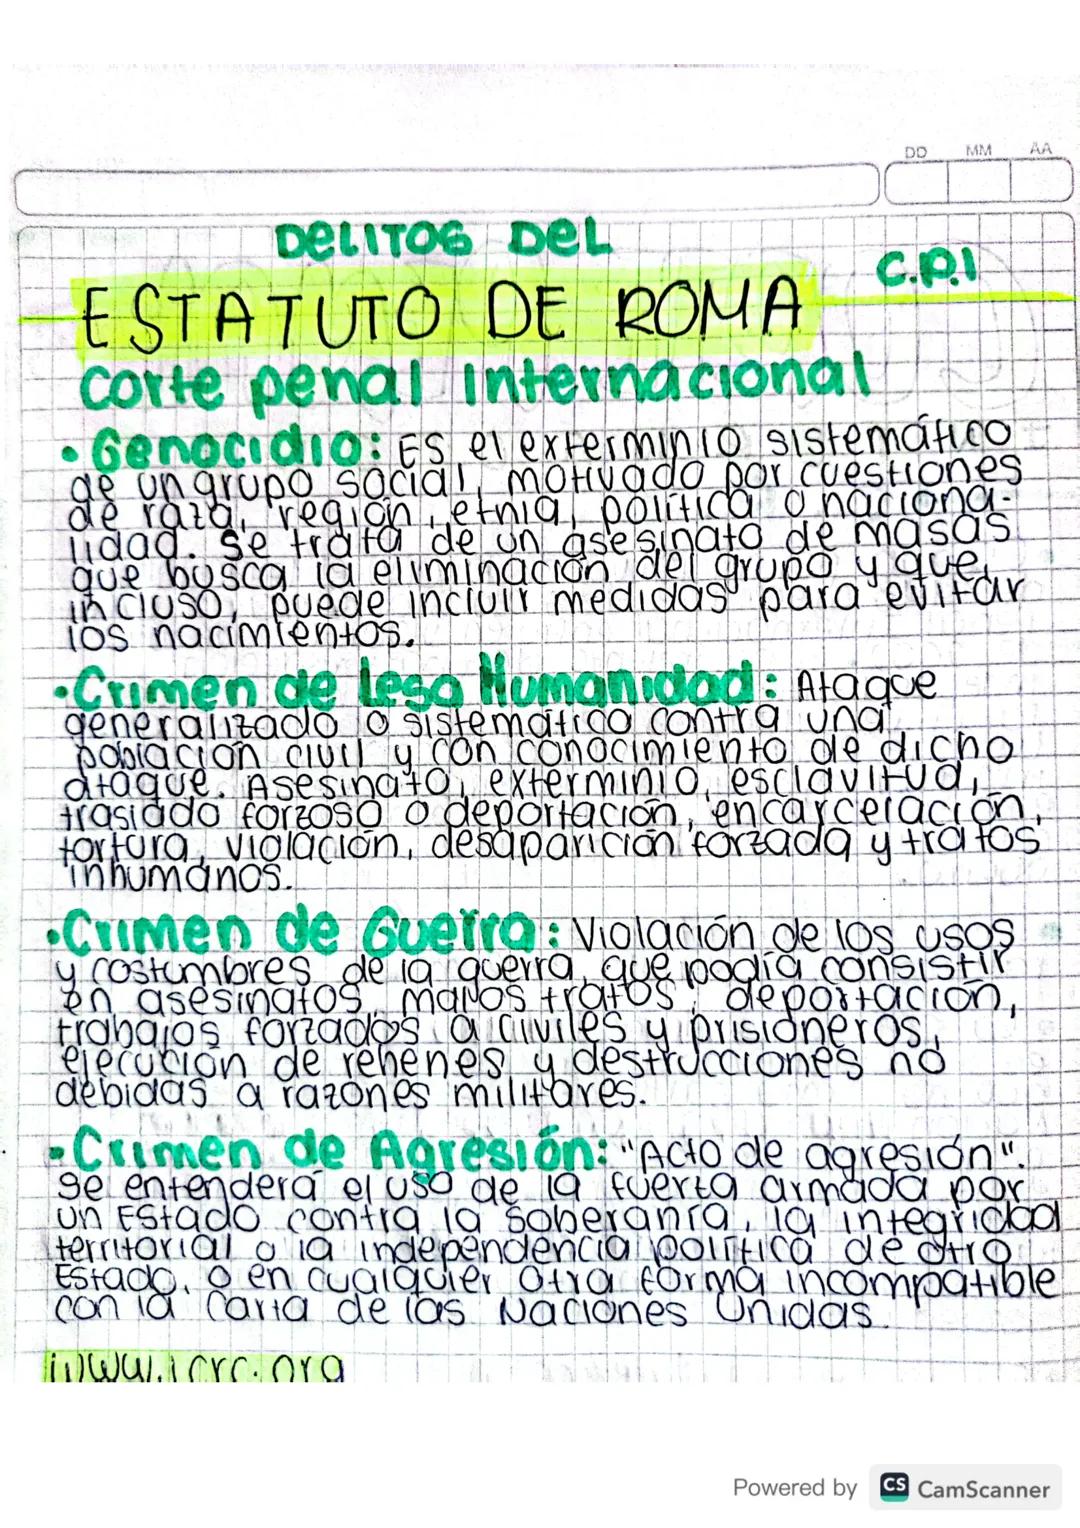 DD MM AA
DELITOS DEL
C.P.I
ESTATUTO DE ROMA
Corte penal Internacional
• Genocidio: Es el exterminio sistemático
de un grupo social, motivado por cuestiones
de raza, region, etnia, política o naciona-
lidad. Se trata de un asesinato de masas
que busca la eliminación del grupo y que,
incluso, puede incluir medidas para evitar
los nacimientos.
• Crimen de Lesa Humanidad: Ataque
generalizado o sistemático contra una
población civil y con conocimiento de dicho
ataque. Asesinato, exterminio, esclavitud,
traslado forzoso o deportación, encarcelación,
tortura, violación, desaparición forzada y tratos
inhumanos.
• Crimen de Guerra: Violación de los usos
y costumbres de la guerra, que podía consistir
en asesinatos, malos tratos, deportación,
trabajos forzados a civiles y prisioneros,
ejecución de rehenes y destrucciones no
debidas a razones militares.
• Crimen de Agresión: "Acto de agresión".
se entenderá el uso de la fuerza armada por
un Estado contra la soberanía, la integridad
territorial o la independencia política de otro
Estado, o en cualquier otra forma incompatible
con la Carta de las Naciones Unidas.
www.icrc.org
Powered by CS CamScanner